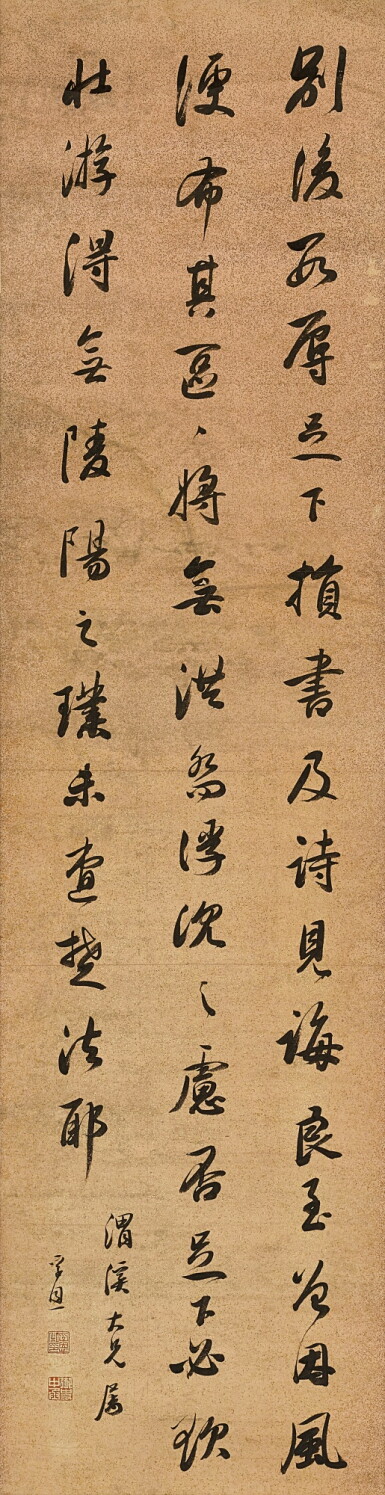 別後辱足下損書及詩見誨良至曾因風
便布其區〻將無洪喬浮沈之慮否足下必欲
壯游得無陵陽之璞未楚法耶
渭溪大兄屬